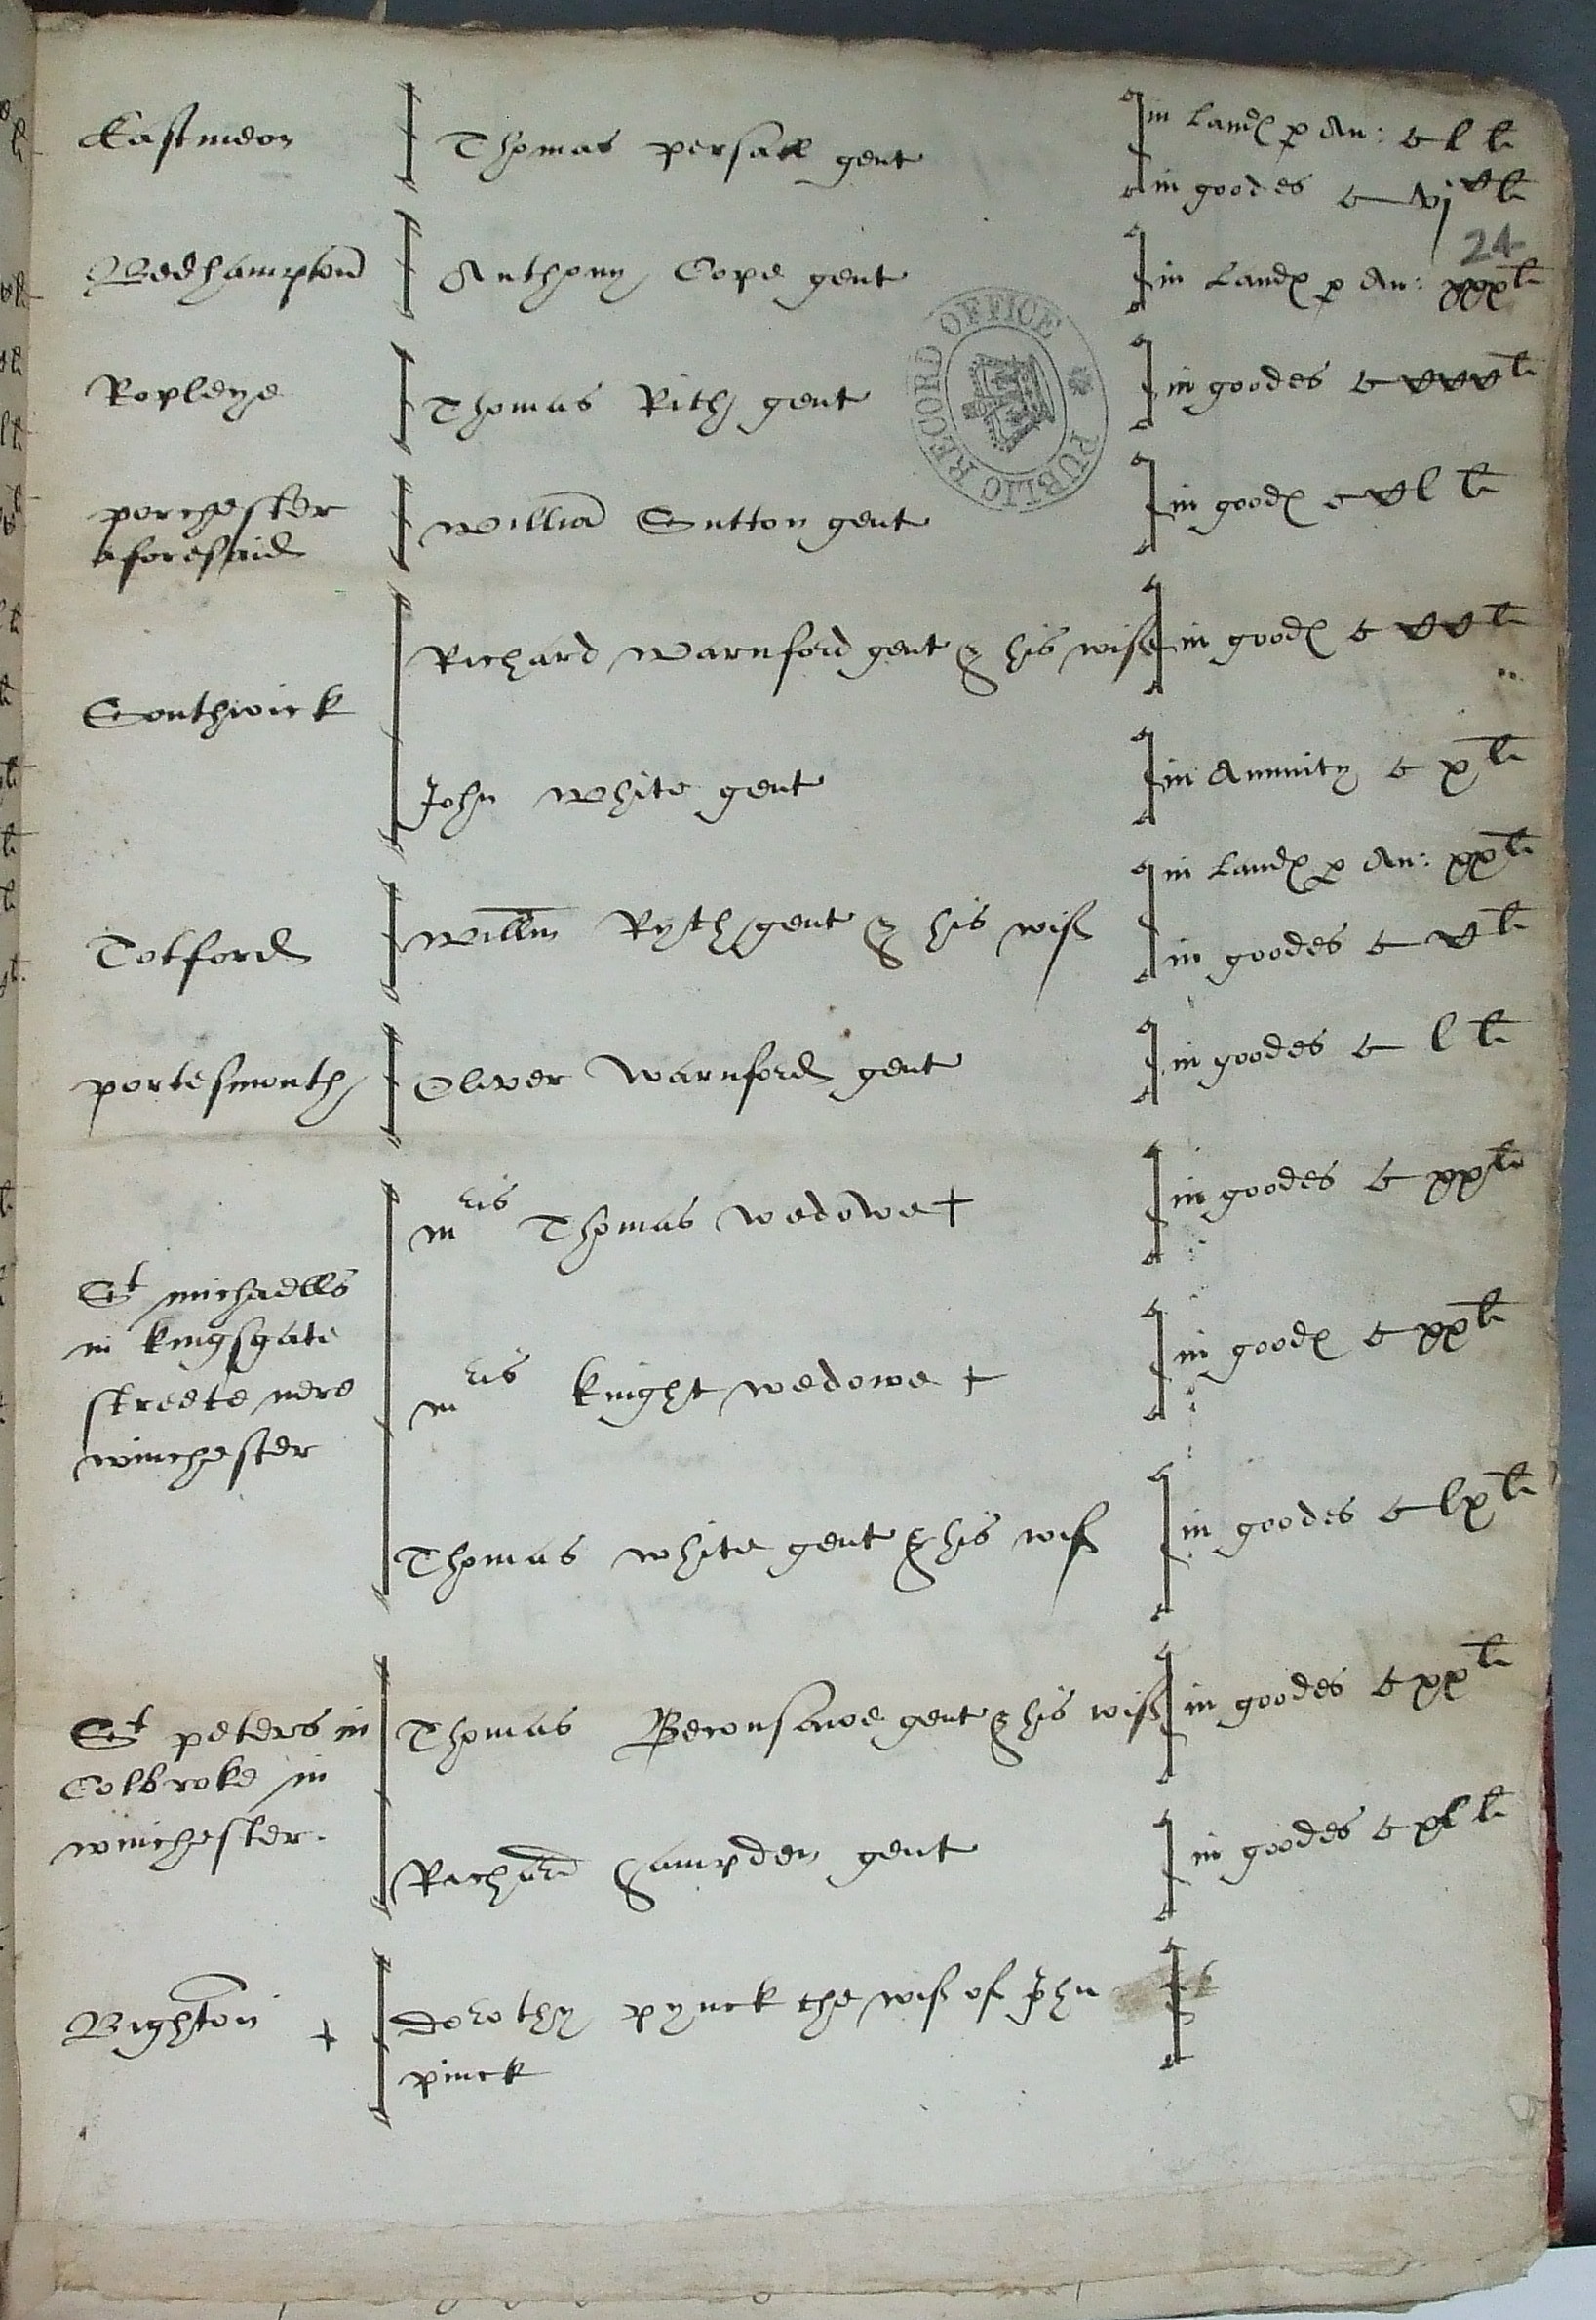 Eastmeon
Thomas persall gent
in Landes p An: C l li
in goodes C vj li
24
Bedhampton
Anthony Cope gent
in Landes p An: xxx li
Ropleye
Thomas Rith gent
in goodes C li
porchester
aforesaid
William Sutton gent
in goodes C l li
Southwick
Richard Warnford gent & his wife
in goodes C li
John White gent
in Annuity C x li
Totford
Willm Ryth gent & his wif
in Landes p An: xx li
in goodes C li
portesmouth
Oliver Warnford gent
in goodes C l li
St michaells
in kingsgate
streete nere
winchester
mris Thomas wedowe +
in goodes C xx li
mris knight wedowe +
in goodes C xx li
Thomas white gent & his wif
in goodes C lx li
St peters in
Colbroke in
winchester.
Thomas gent & his wif
in goodes C xx li
Richard hampden gent
in goodes C xl li
Bighton +
dorothy pynck the wif of John
pinck
PUBLIC RECORD OFFICE